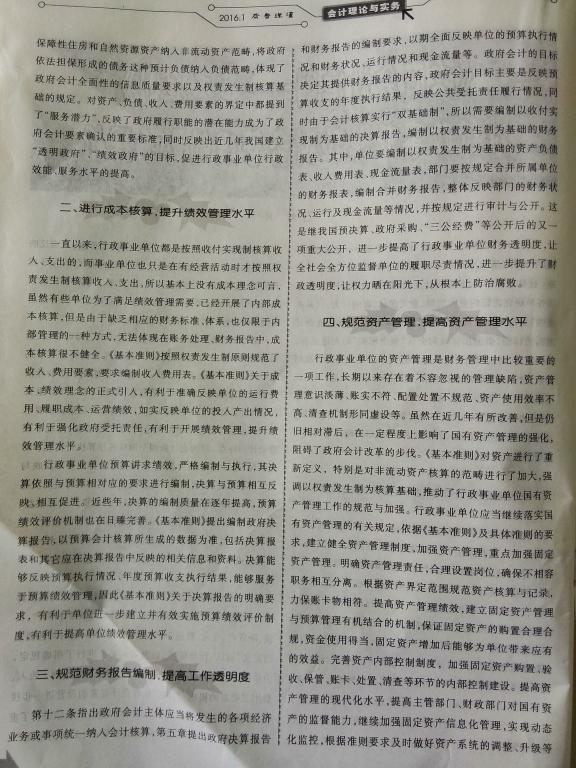 2016.1
会计理论与实务
保障性住房和自然资源资产纳入非流动资产范畴,将政府
依法担保形成的债务这种预计负债纳入负债范畴,体现了
政府会计全面性的信息质量要求以及权责发生制核算基
础的规定。对资产、负债、收入、费用要素的界定中都提到
了“服务潜力”,反映了政府履行职能的潜在能力成为了政
府会计要素确认的重要标准,同时反映出近几年我国建立
“透明政府”、“绩效政府”的目标,促进行政事业单位行政
效能、服务水平的提高。
二、进行成本核算,提升绩效管理水平
一直以来,行政事业单位都是按照收付实现制核算收
入、支出的,而事业单位也只是在有经营活动时才按照权
责发生制核算收入、支出,所以基本上没有成本理念可言,
虽然有些单位为了满足绩效管理需要,已经开展了内部成
本核算,但是由于缺乏相应的财务标准、体系,也仅限于内
部管理的一种方式,无法体现在账务处理、财务报告中,成
本核算很不健全。《基本准则》按照权责发生制原则规范了
收入、费用要素,要求编制收入费用表。《基本准则》关于成
本、绩效理念的正式引入,有利于准确反映单位的运行费
用、履职成本、运营绩效,如实反映单位的投入产出情况,
有利于强化政府受托责任,有利于开展绩效管理,提升绩
效管理水平。
行政事业单位预算讲求绩效,严格编制与执行,其决
算依照与预算相对应的要求进行编制,决算与预算相互反
映、相互促进。近些年,决算的编制质量在逐年提高,预算
绩效评价机制也在日臻完善。《基本准则》提出编制政府决
算报告,以预算会计核算所生成的数据为准,包括决算报
表和其它应在决算报告中反映的相关信息和资料。决算能
够反映预算执行情况、年度预算收支执行结果,能够服务
于预算绩效管理,因此《基本准则》关于决算报告的明确要
求,有利于单位进一步建立并有效实施预算绩效评价制
度,有利于提高单位绩效管理水平。
三、规范财务报告编制,提高工作透明度
第十二条指出政府会计主体应当将发生的各项经济
业务或事项统一纳入会计核算,第五章提出政府决算报告
和财务报告的编制要求,以期全面反映单位的预算执行情
况和财务状况、运行情况和现金流量等。政府会计的目标
决定其提供财务报告的内容,政府会计目标主要是反映预
算收支的年度执行结果,反映公共受托责任履行情况,同
时由于会计核算实行“双基础制”,所以需要编制以收付实
现制为基础的决算报告,编制以权责发生制为基础的财务
报告。其中,单位要编制以权责发生制为基础的资产负债
表、收入费用表、现金流量表,部门要按规定合并所属单位
的财务报表,编制合并财务报告,整体反映部门的财务状
况、运行及现金流量等情况,并按规定进行审计与公开。这
是继我国预决算、政府采购、“三公经费”等公开后的又一
项重大公开,进一步提高了行政事业单位财务透明度,让
全社会全方位监督单位的履职尽责情况,进一步提升了财
政透明度,让权力晒在阳光下,从根本上防治腐败。
四、规范资产管理,提高资产管理水平
行政事业单位的资产管理是财务管理中比较重要的
一项工作,长期以来存在着不容忽视的管理缺陷;资产管
理意识淡薄、账实不符、配置处置不规范、资产使用效率不
高、清查机制形同虚设等。虽然在近几年有所改善,但是仍
旧相对滞后,在一定程度上影响了国有资产管理的强化,
阻碍了政府会计改革的步伐。《基本准则》对资产进行了重
新定义,特别是对非流动资产核算的范畴进行了加大,强
调以权责发生制为核算基础,推动了行政事业单位国有资
产管理工作的规范与加强。行政事业单位应当继续落实国
有资产管理的有关规定,依据《基本准则》及具体准则的要
求,建立健全资产管理制度,加强资产管理,重点加强固定
资产管理。明确资产管理责任,合理设置岗位,确保不相容
职务相互分离。根据资产界定范围规范资产核算与记录,
力保账卡物相符。提高资产管理绩效,建立固定资产管理
与预算管理有机结合的机制,保证固定资产的购置合理合
规,资金使用得当,固定资产增加后能够为单位带来应有
的效益。完善资产内部控制制度,加强固定资产购置、验
收、保管、账卡、处置、清查等环节的内部控制建设。提高资
产管理的现代化水平,提高主管部门、财政部门对国有资
产的监督能力,继续加强固定资产信息化管理,实现动态
化监控,根据准则要求及时做好资产系统的调整、升级等